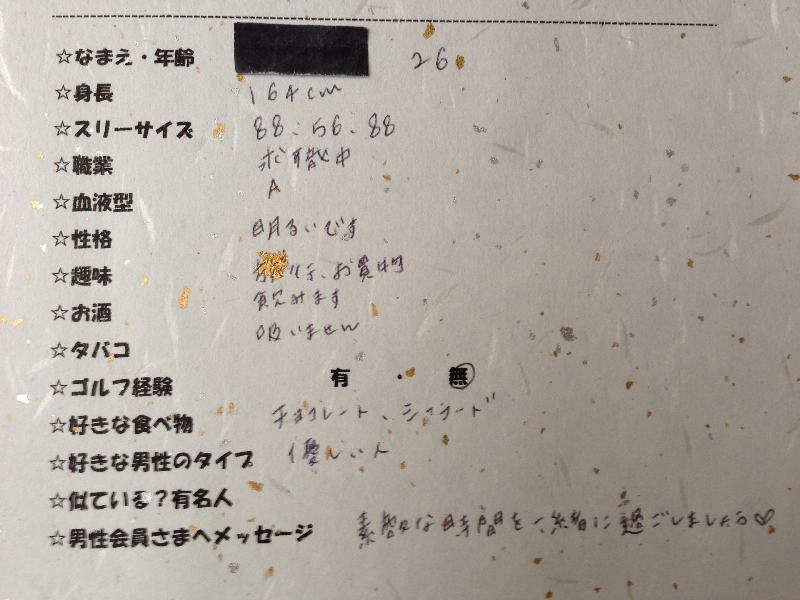 ☆なまえ・年齢 26
☆身長 164cm
☆スリーサイズ 88.56.88
☆職業 求職中
☆血液型 A
☆性格 明るいです
☆趣味 旅行、お買物
☆お酒 飲みます
☆タバコ 吸いません
☆ゴルフ経験 有・無
☆好きな食べ物 チョコレート、シーフード
☆好きな男性のタイプ 優しい人
☆似ている?有名人
☆男性会員さまへメッセージ 素敵な時間を一緒に過ごしましょう♡